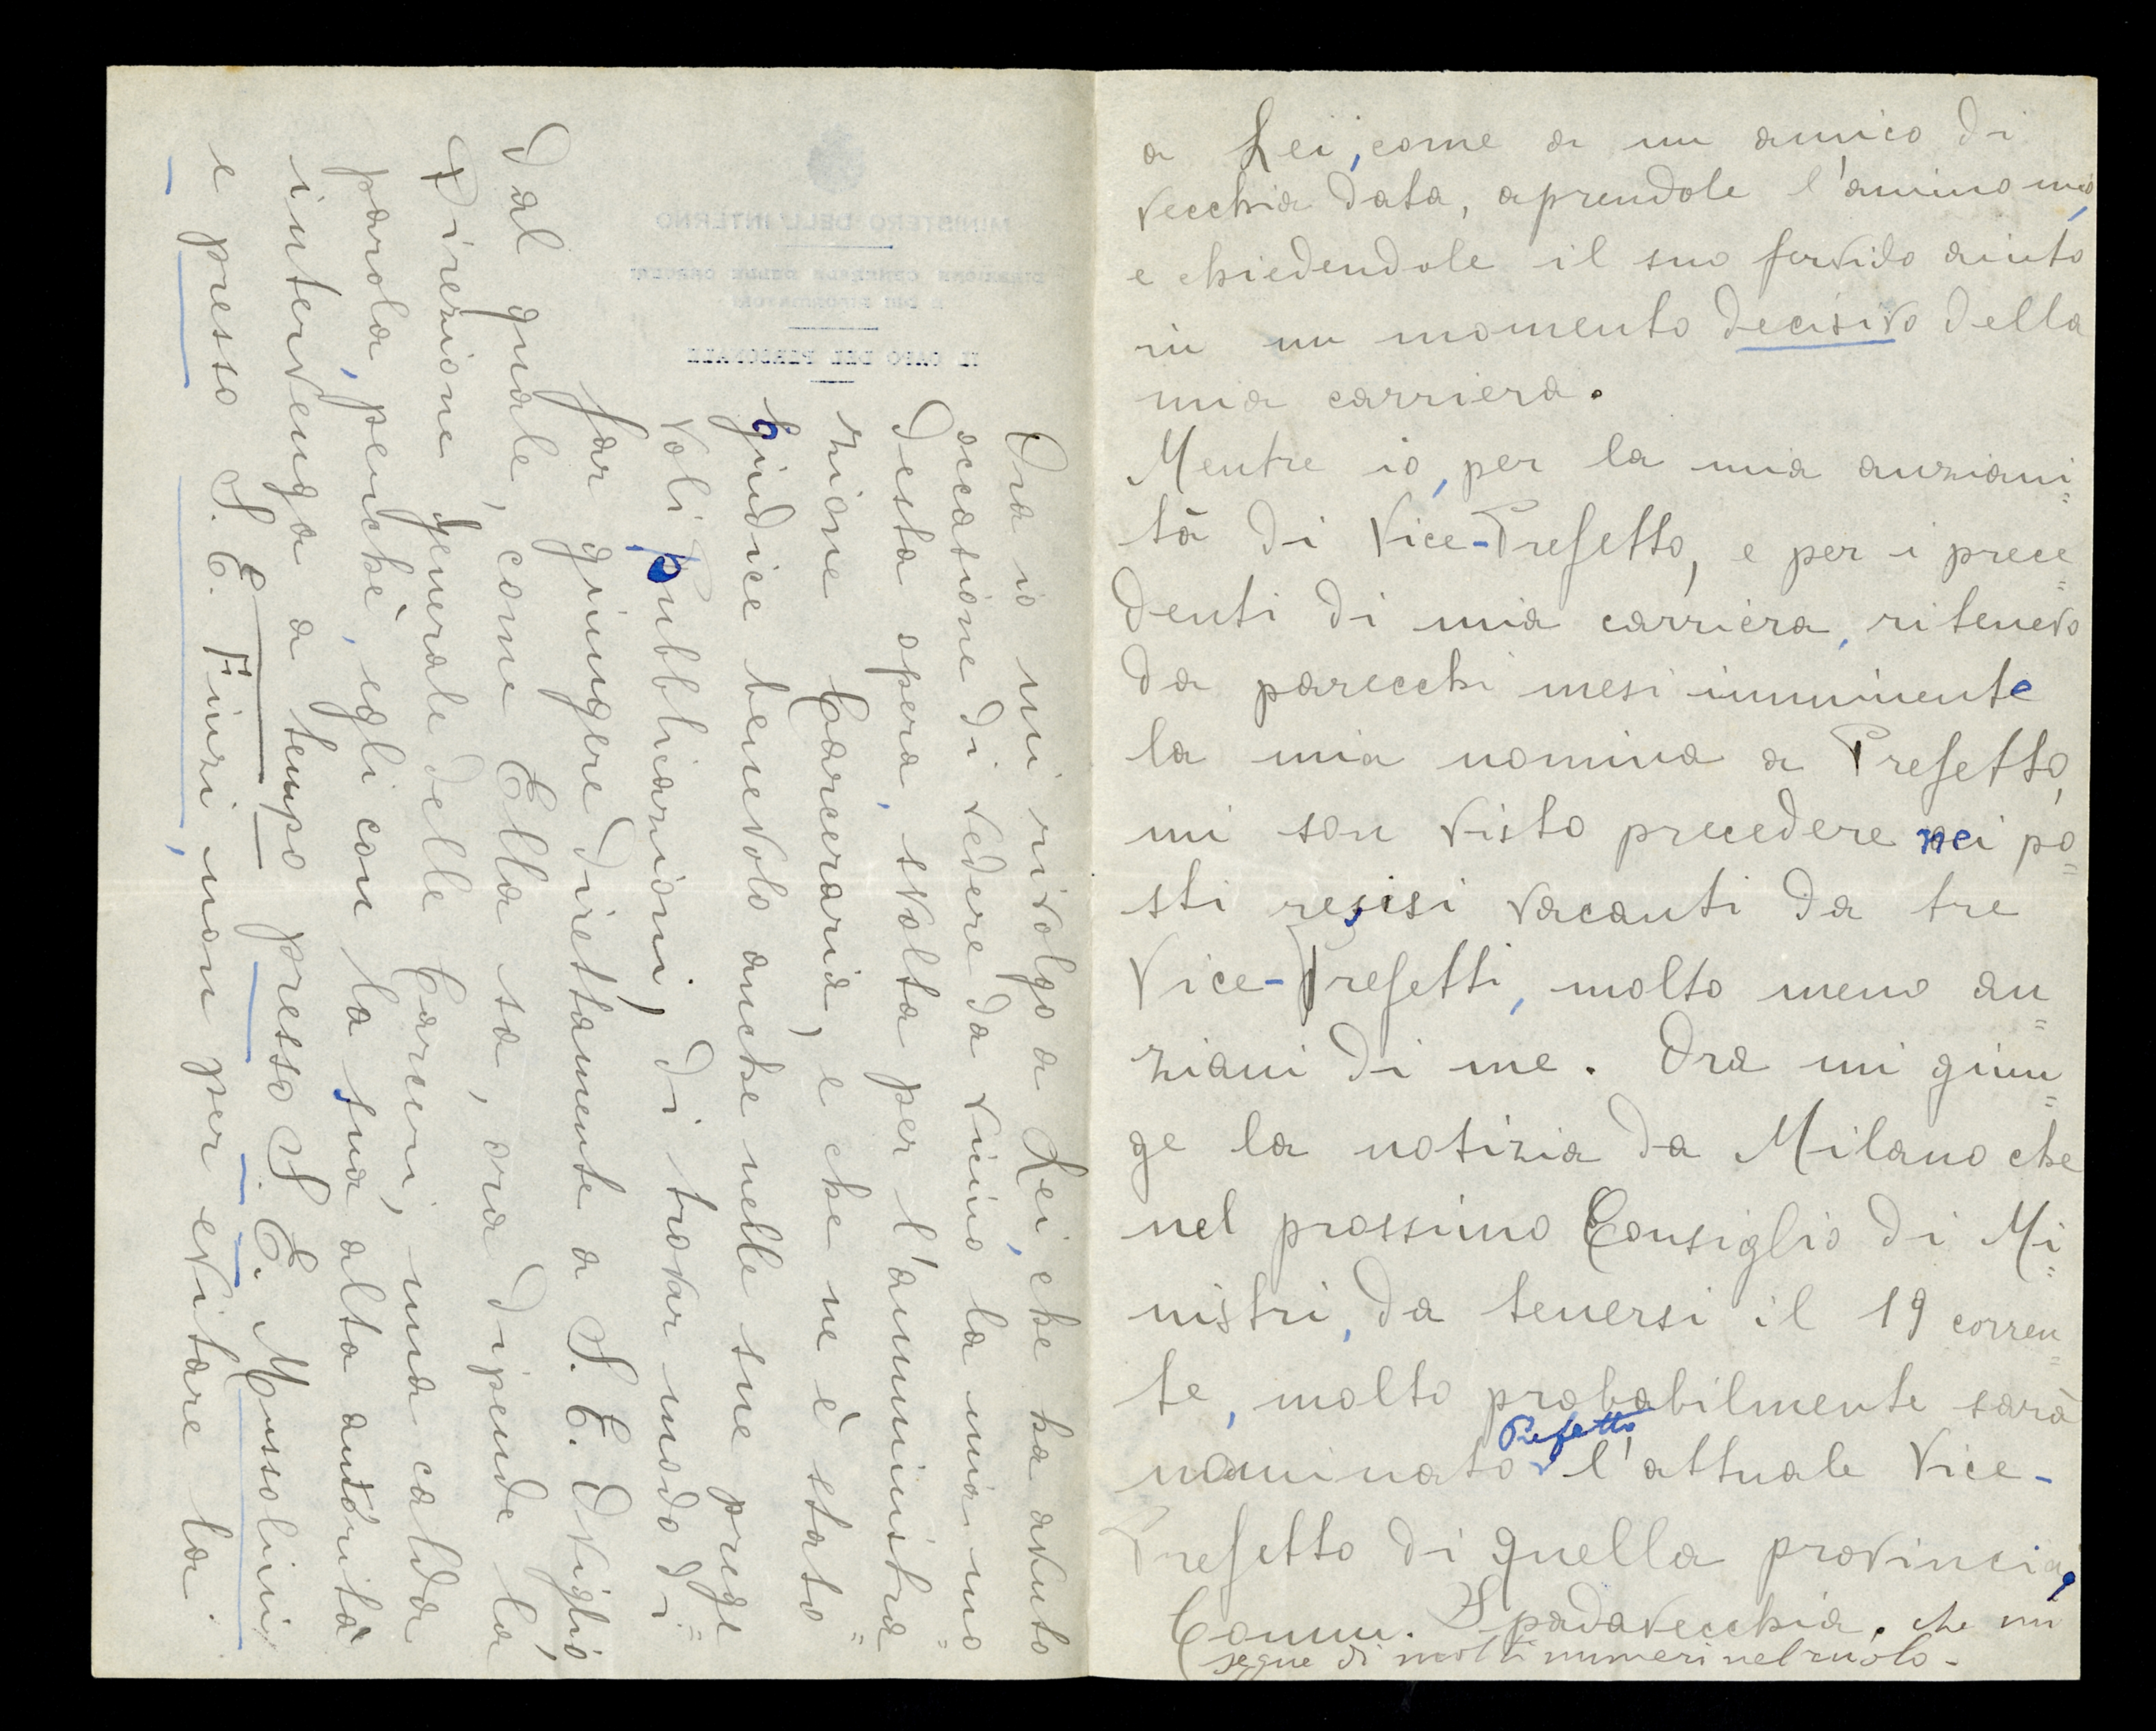 a Lei, come a un amico di
vecchia data, aprendole l'animo mio,
e chiedendole il suo fervido aiuto
in un momento decisivo della
mia carriera.
Mentre io, per la mia anziani=
tà di Vice-Prefetto, e per i prece=
denti di mia carriera, ritenevo
da parecchi mesi imminente
la mia nomina a Prefetto,
mi son visto precedere nei po=
sti resisi vacanti da tre
Vice-Prefetti, molto meno an=
ziani di me. Ora mi giun=
ge la notizia da Milano che
nel prossimo Consiglio di Mi=
nistri, da tenersi il 19 corren=
te, molto probabilmente sarà
Prefetto
nominato l'attuale Vice-
Prefetto di quella provincia,
Comm. Spadavecchia, che mi
segue di molti numeri nel ruolo.
Ora io mi rivolgo a Lei, che ha avuto
occasione di vedere da vicino la mia mo=
desta opera, svolta per l'amministra
zione Carceraria, e che ne è stato=
giudice benevolo anche nelle sue prege
voli pubblicazioni, di trovar modo di=
far giungere direttamente a S. E. Oviglio,
dal quale, come Ella sa, ora dipende la
Direzione Generale delle Carceri, una calda
parola, perché, egli con la sua alta autorità
intervenga a tempo presso S. E. Mussolini
e presso S. E. Finzi, non per evitare la
MINISTERO DELL'INTERNO
DIREZIONE GENERALE DELLE CARCERI
E DEI RIFORMATORI
IL CAPO DEL PERSONALE